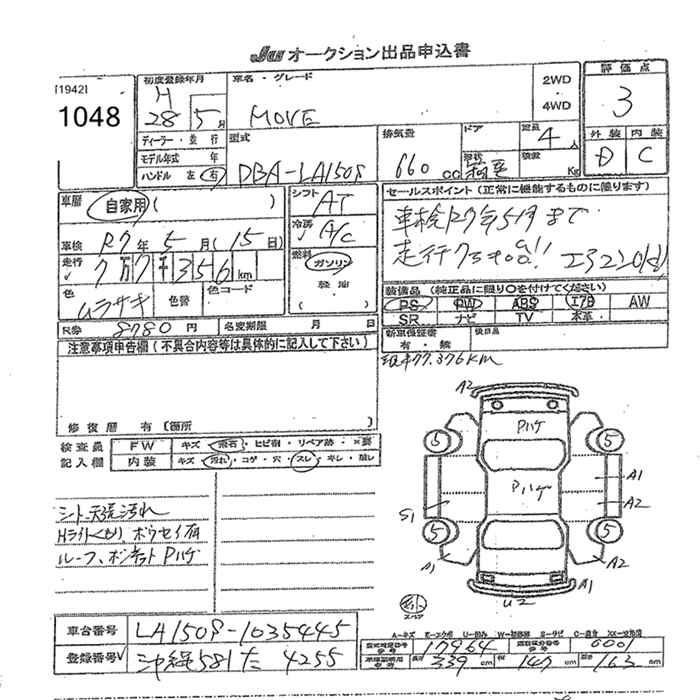 Ju オークション出品申込書
[1942]
1048
初度登録年月
H 28年 5月
車名・グレード
MOVE
2WD
4WD
評価点
3
外装 内装
D C
ディーラー・並行
モデル年式 年
ハンドル 左 右
型式
DBA-LA150S
排気量
660 cc
ドア
形状
定員
4人
積載
Kg
車歴 自家用 ( )
車検 R7年 5月 (15日)
走行 7万7千356 km
色 ムラサキ
色替
色コード
R券 8780円
名変期限 月 日
シフト AT
冷房 A/C
燃料 ガソリン
軽油
セールスポイント(正常に機能するものに限ります)
車検R7年5月まで
走行7万キロ台!!
装備品(純正品に限り○を付けてください)
PS PW ABS エアB AW
SR ナビ TV 本革
新車保証書
有・無
後日品
77,376KM
注意事項申告欄(不具合内容等は具体的に記入して下さい)
修復歴 有 [箇所 ]
検査員
記入欄
FW キズ・飛石・ヒビ割・リペア跡・×要
内装 キズ・汚れ・コゲ・穴・スレ・キレ・無し
シート天張汚れ
Hライトくもり、ボウセイ有
ルーフ、ボンネットPハゲ
A2
Pハゲ
5
5
Pハゲ
A1
A2
S1
5
5
A1
A2
A1
U2
スペア
車台番号 LA150S-1035445
登録番号 沖縄581た4255
A-キズ E-エクボ U-凹み W-補修跡 S-サビ C-腐食 XX-交換済
型式指定番号 17964
類別区分番号 0001
長さ 339 cm 幅 147 cm 高さ 163 cm